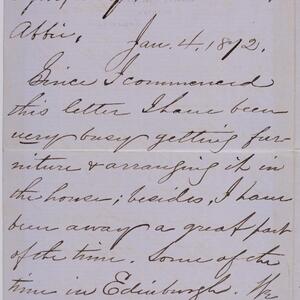 Abbie,
Jan. 4. 1872.
Since I commenced
this letter I have been
very busy getting fur-
niture & arranging it in
the house; besides, I have
been away a great part
of the time. Some of the
time in Edinburgh. We